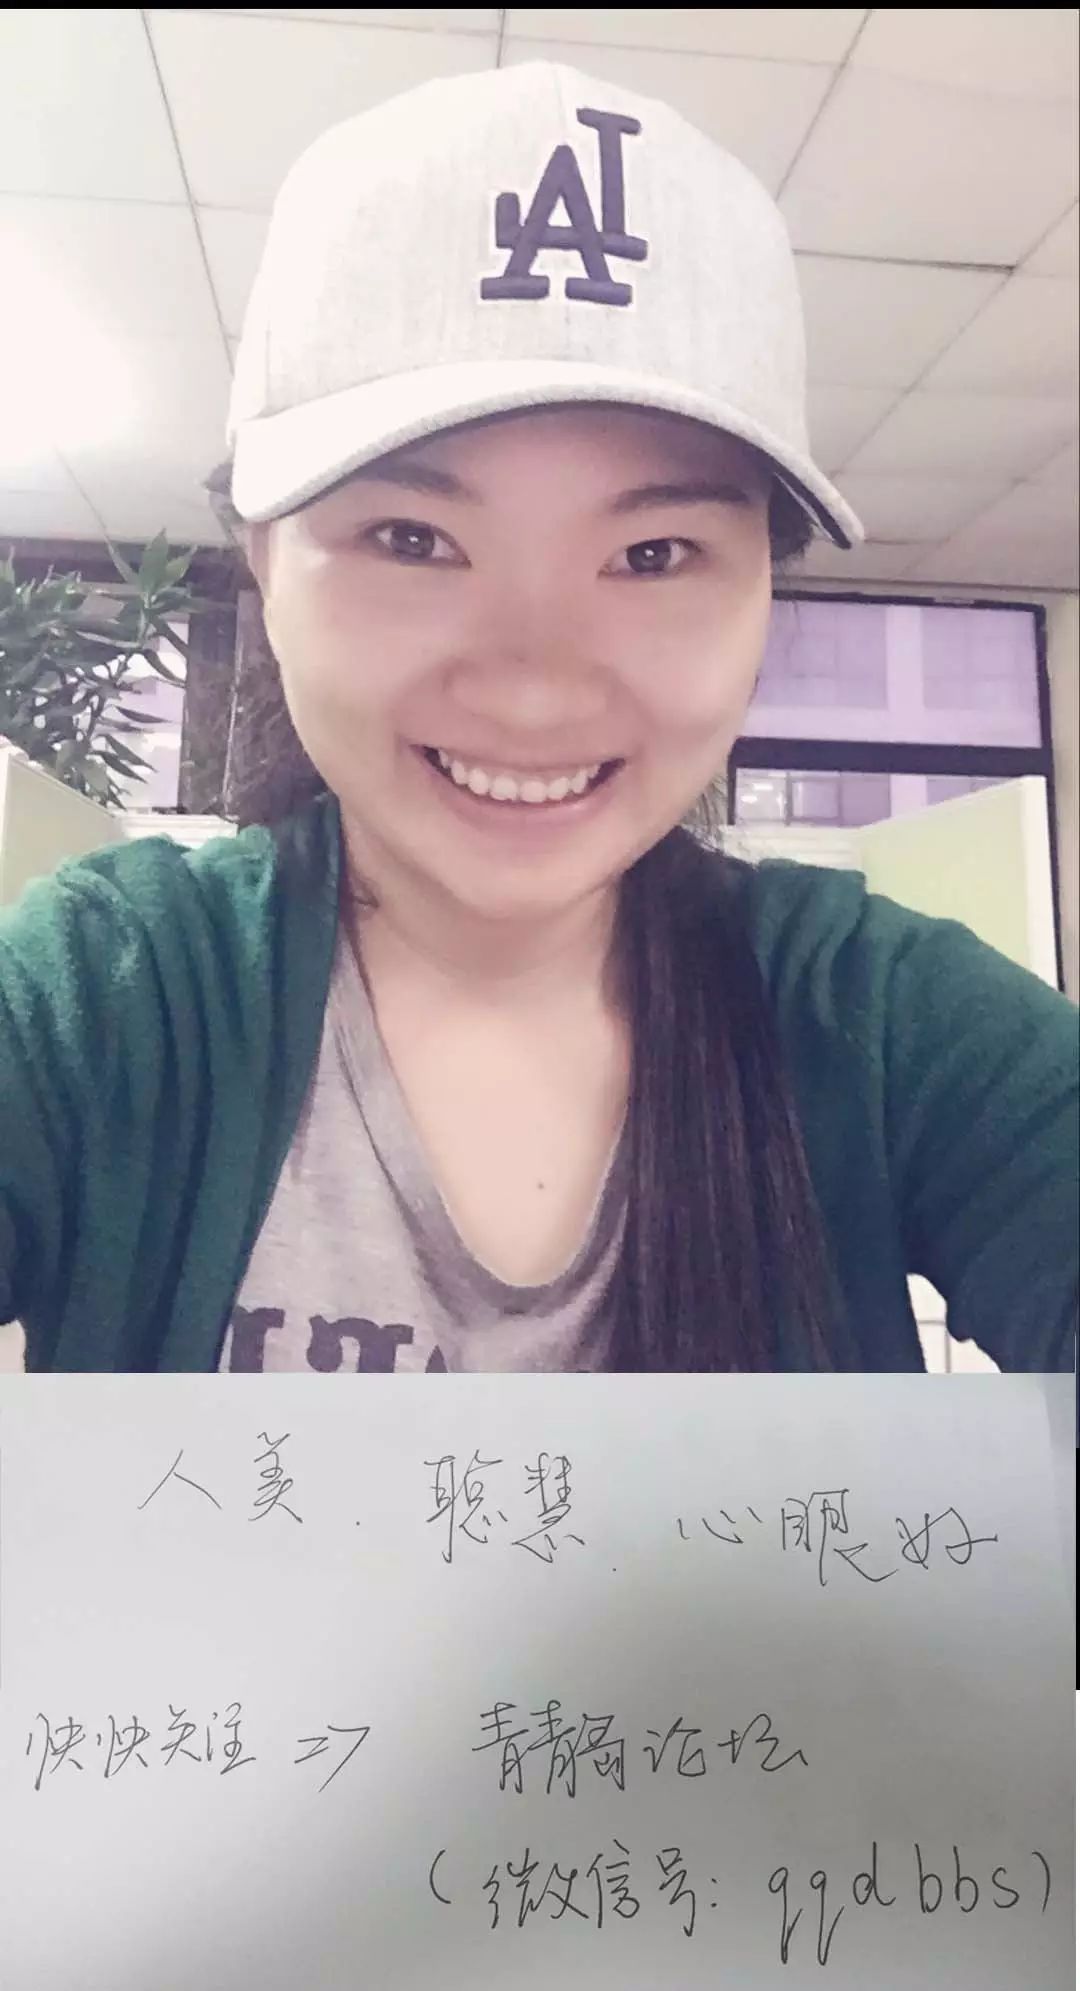 LA
人美.聪慧.心眼好
快快关注 => 青青岛论坛
(微信号: qqdbbs)